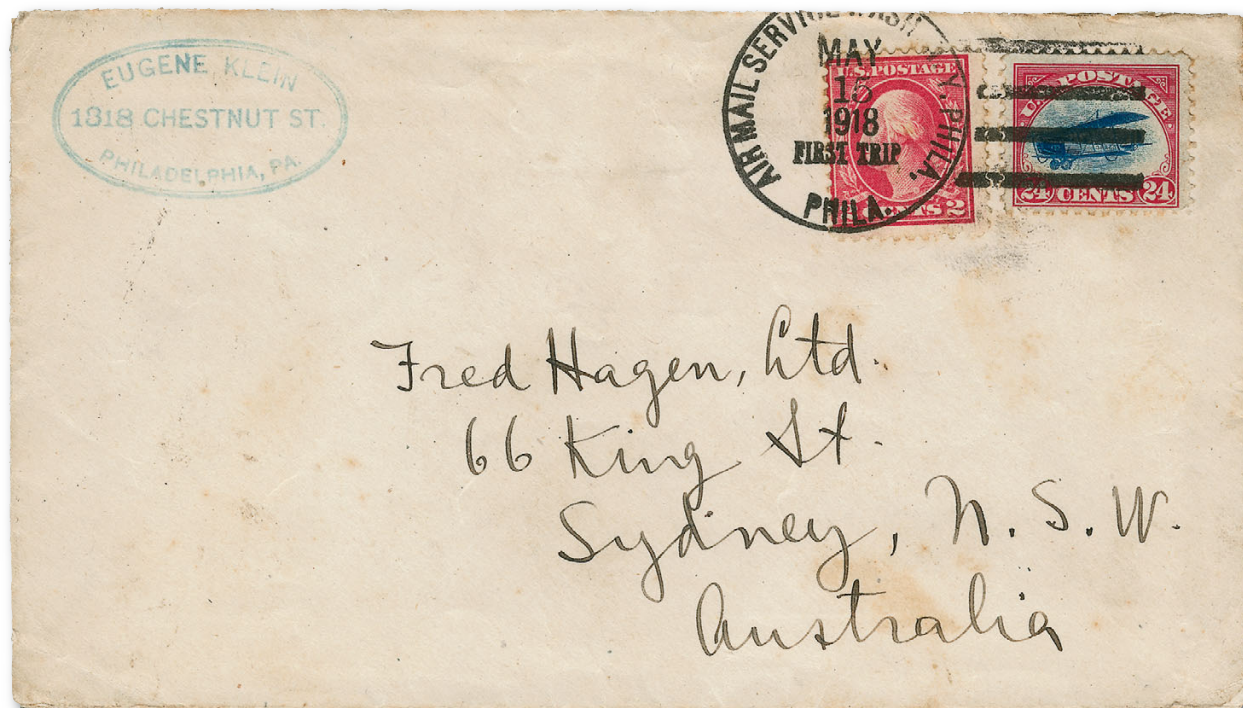 EUGENE KLEIN
1318 CHESTNUT ST.
PHILADELPHIA, PA.
AIR MAIL SERVICE WASH. N.Y. PHILA.
MAY
15
1918
FIRST TRIP
PHILA.
U.S. POSTAGE
CENTS 2
U.S. POSTAGE
24 CENTS 24
Fred Hagen, Ltd.
66 King St.
Sydney, N. S. W.
Australia